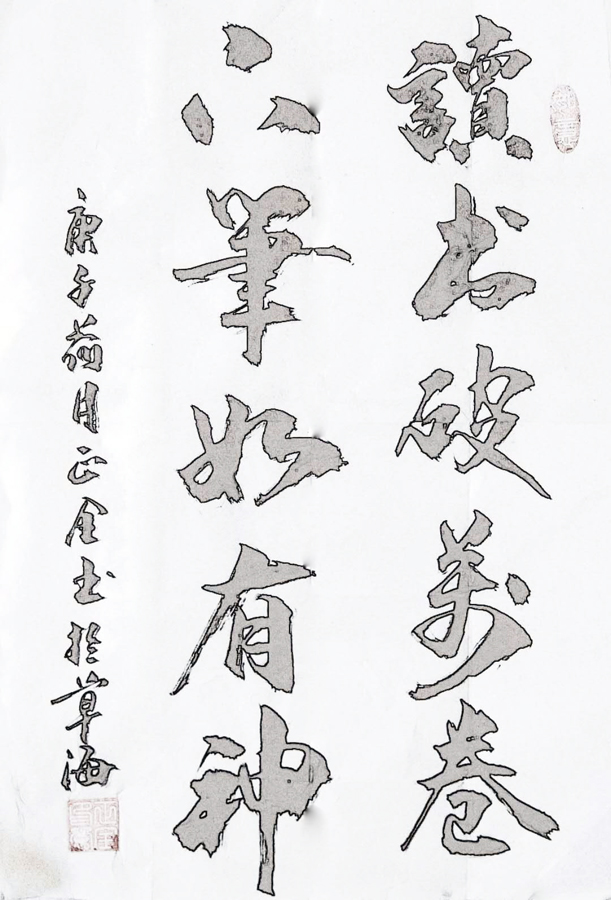 讀书破萬卷
下筆如有神
庚子荷月正全书於草海